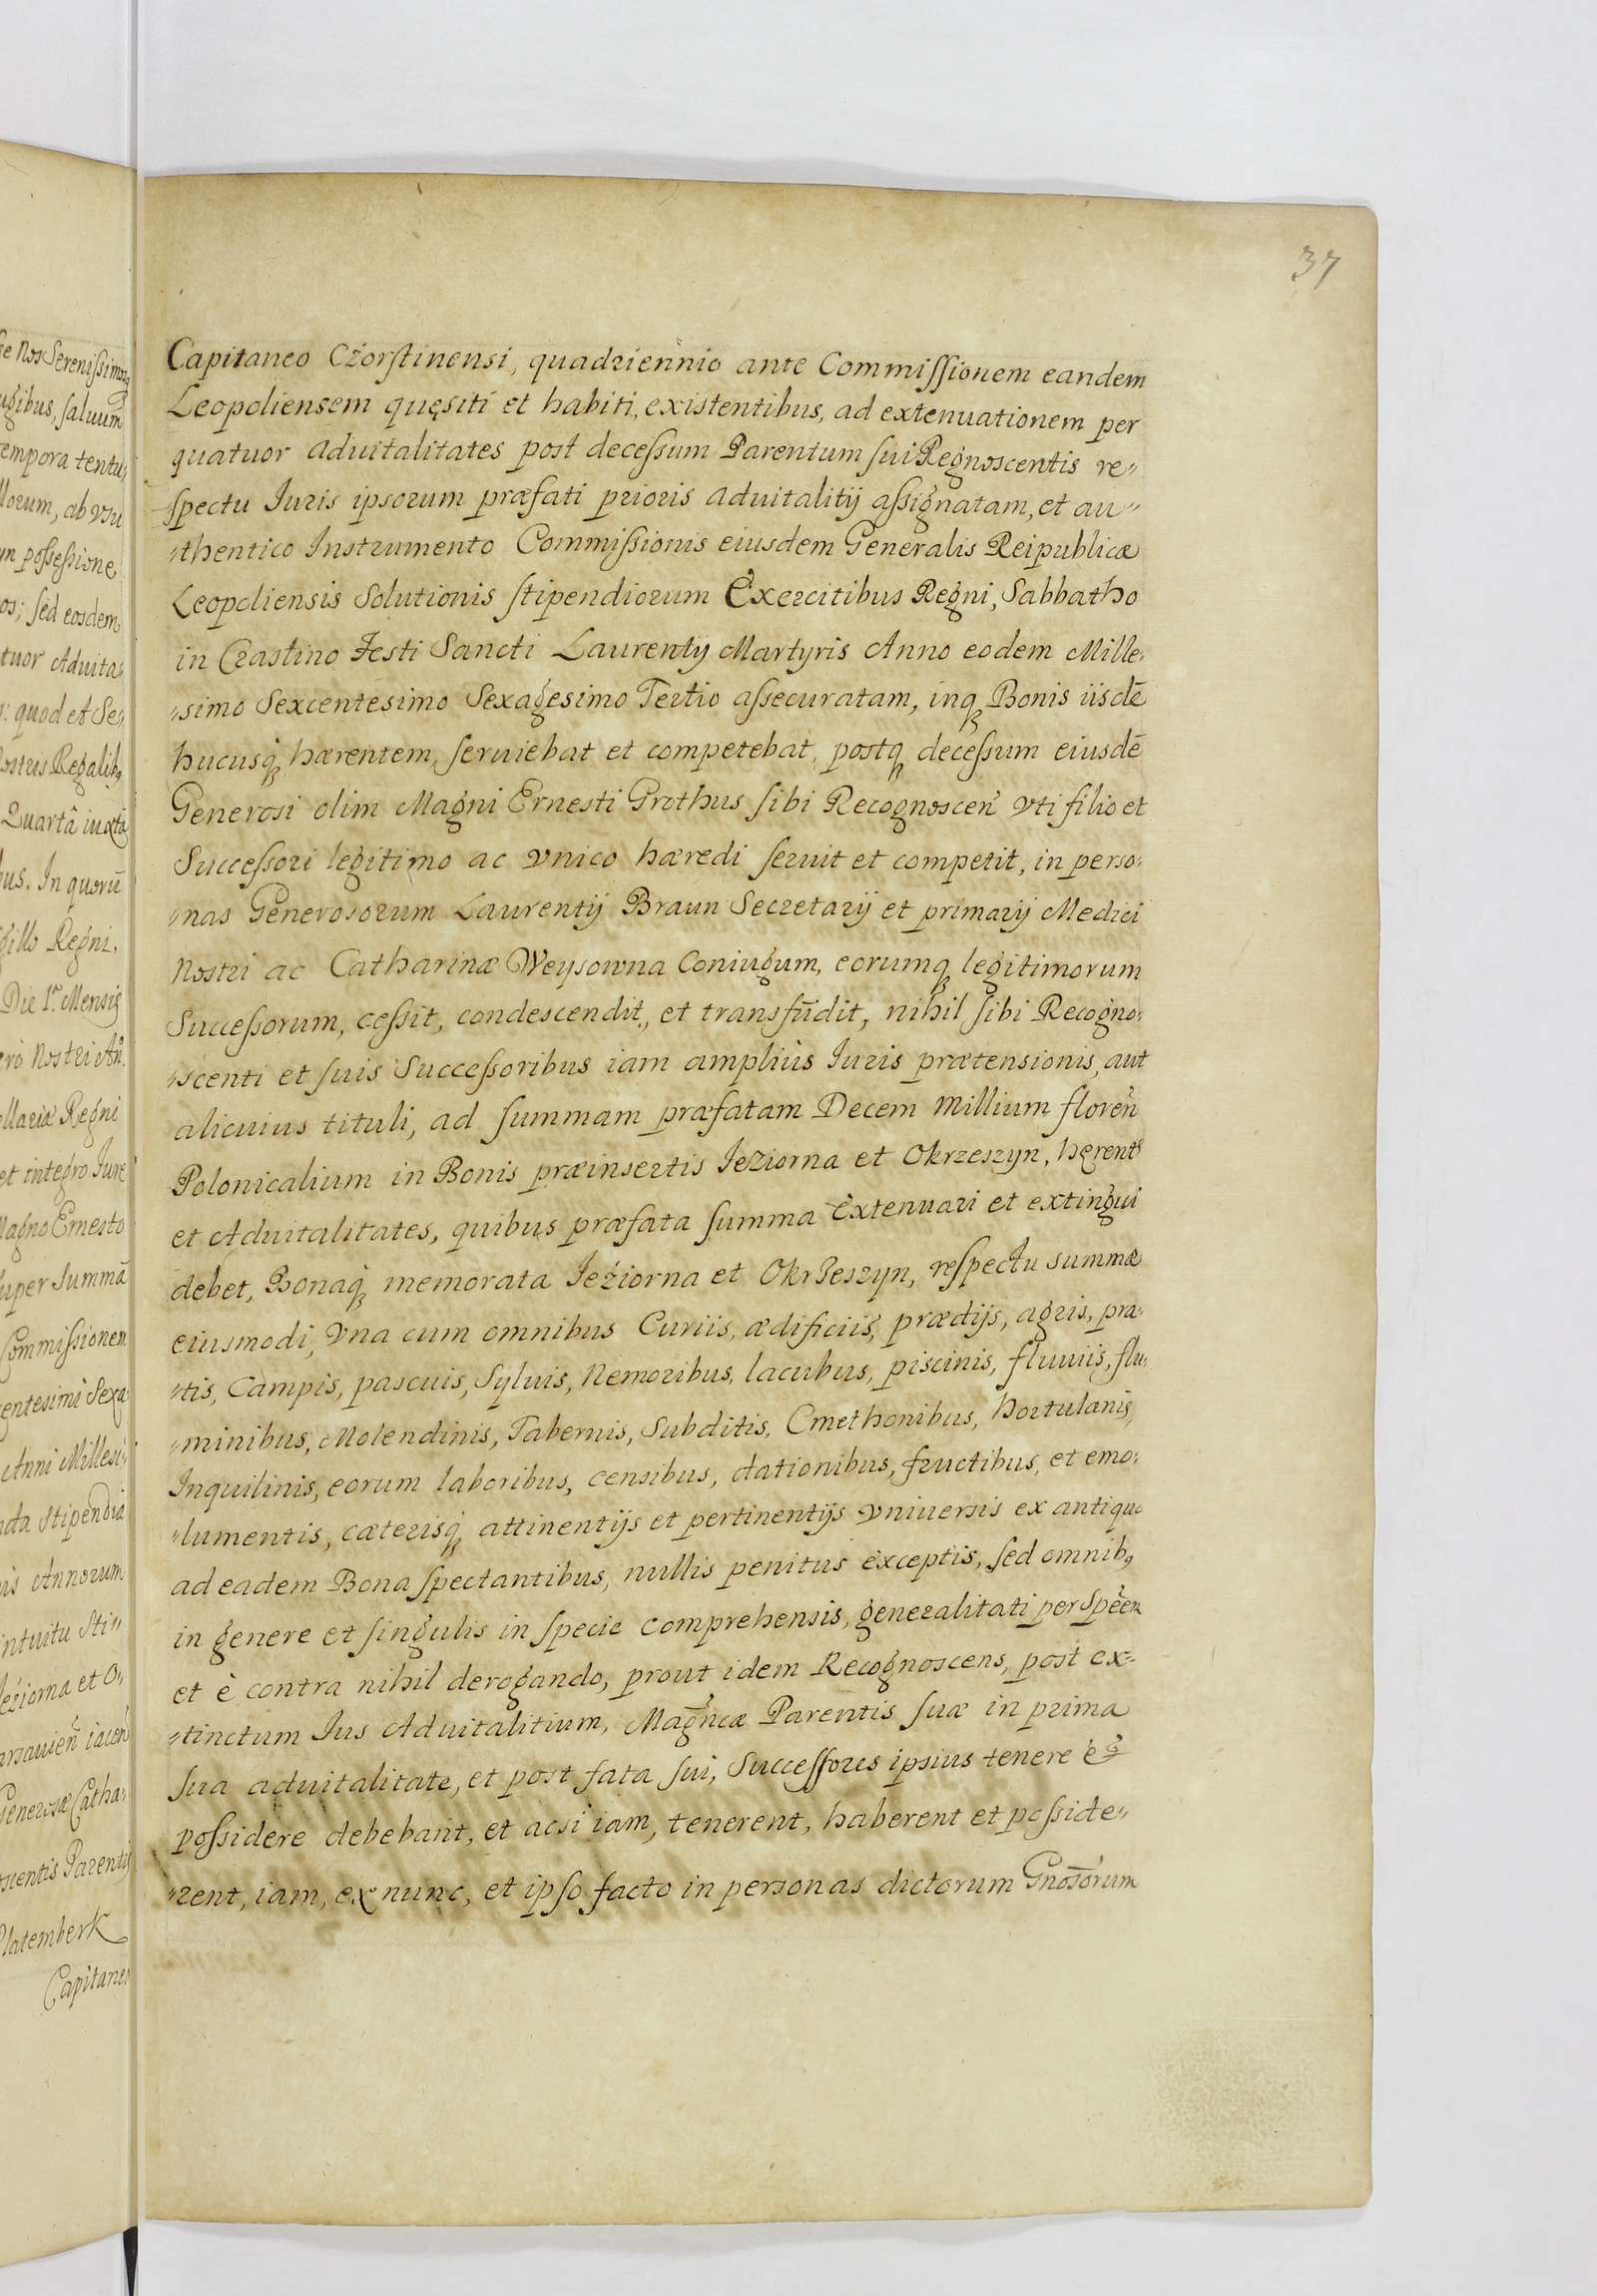 37
Capitaneo Czorſtinensi, quadriennio ante Commiſſionem eandem
Leopoliensem quęsiti et habiti, existentibus, ad extenuationem per
quatuor aduitalitates post deceſsum Parentum ſui Regnoscentis re„
ſpectu Iuris ipsorum præfati prioris aduitalitij aſsignatam, et au„
„thentico Instrumento Commiſsionis eiusdem Generalis Reipublicæ
Leopoliensis Solutionis ſtipendiorum Exercitibus Regni, Sabbatho
in Crastino Festi Sancti Laurentij Martyris Anno eodem Mille„
„simo Sexcentesimo Sexagesimo Tertio aſsecuratam, inq́ Bonis iisdē
hucusq́ hærentem, ſeruiebat et competebat, postq́ deceſsum eiusdē
Generosi olim Magni Ernesti Grothus ſibi Recognoscen̄ vti filio et
Succeſsori legitimo ac vnico hæredi ſeruit et competit, in perso„
„nas Generosorum Laurentij Braun Secretarij et primarij Medici
Nostri ac Catharinæ Weysowna Coniugum, eorumq́ legitimorum
Succeſsorum, ceſsit, condescendit, et transfūdit, nihil ſibi Recogno„
„scenti et ſuis Succeſsoribus iam ampliùs Iuris prætensionis, aut
alicuius tituli, ad ſummam præfatam Decem Millium floren̄
Polonicalium in Bonis præinsertis Ieziorna et Okrzeszyn, hęrentē
et Aduitalitates, quibus præfata ſumma extenuari et extingui
debet, Bonaq́ memorata Ieziorna et Okrzeszyn, reſpectu summæ
eiusmodi, vna cum omnibus Curiis, ædificiis, prædijs, agris, pra„
„tis, Campis, pascuis, Syluis, Nemoribus, lacubus, piscinis, fluuiis, flu„
„minibus, Molendinis, Tabernis, Subditis, Cmethonibus, hortulanis,
Inquilinis, eorum laboribus, censibus, dationibus, fructibus, et emo„
„lumentis, cæterisq́ attinentijs et pertinentijs vniuersis ex antiquo
ad eadem Bona ſpectantibus, nullis penitus exceptis, ſed omnibꝰ
in genere et ſingulis in ſpecie comprehensis, generalitati per Spēen
et è contra nihil derogando, prout idem Recognoscens, post ex„
„tinctum Ius Aduitalitium, Magn̄cæ Parentis ſuæ in prima
ſua aduitalitate, et post fata ſui, Succeſſores ipsius tenere et
poſsidere debebant, et acsi iam, tenerent, haberent et poſside„
„rent, iam, ex nunc, et ipſo facto in personas dictorum Gnosorum